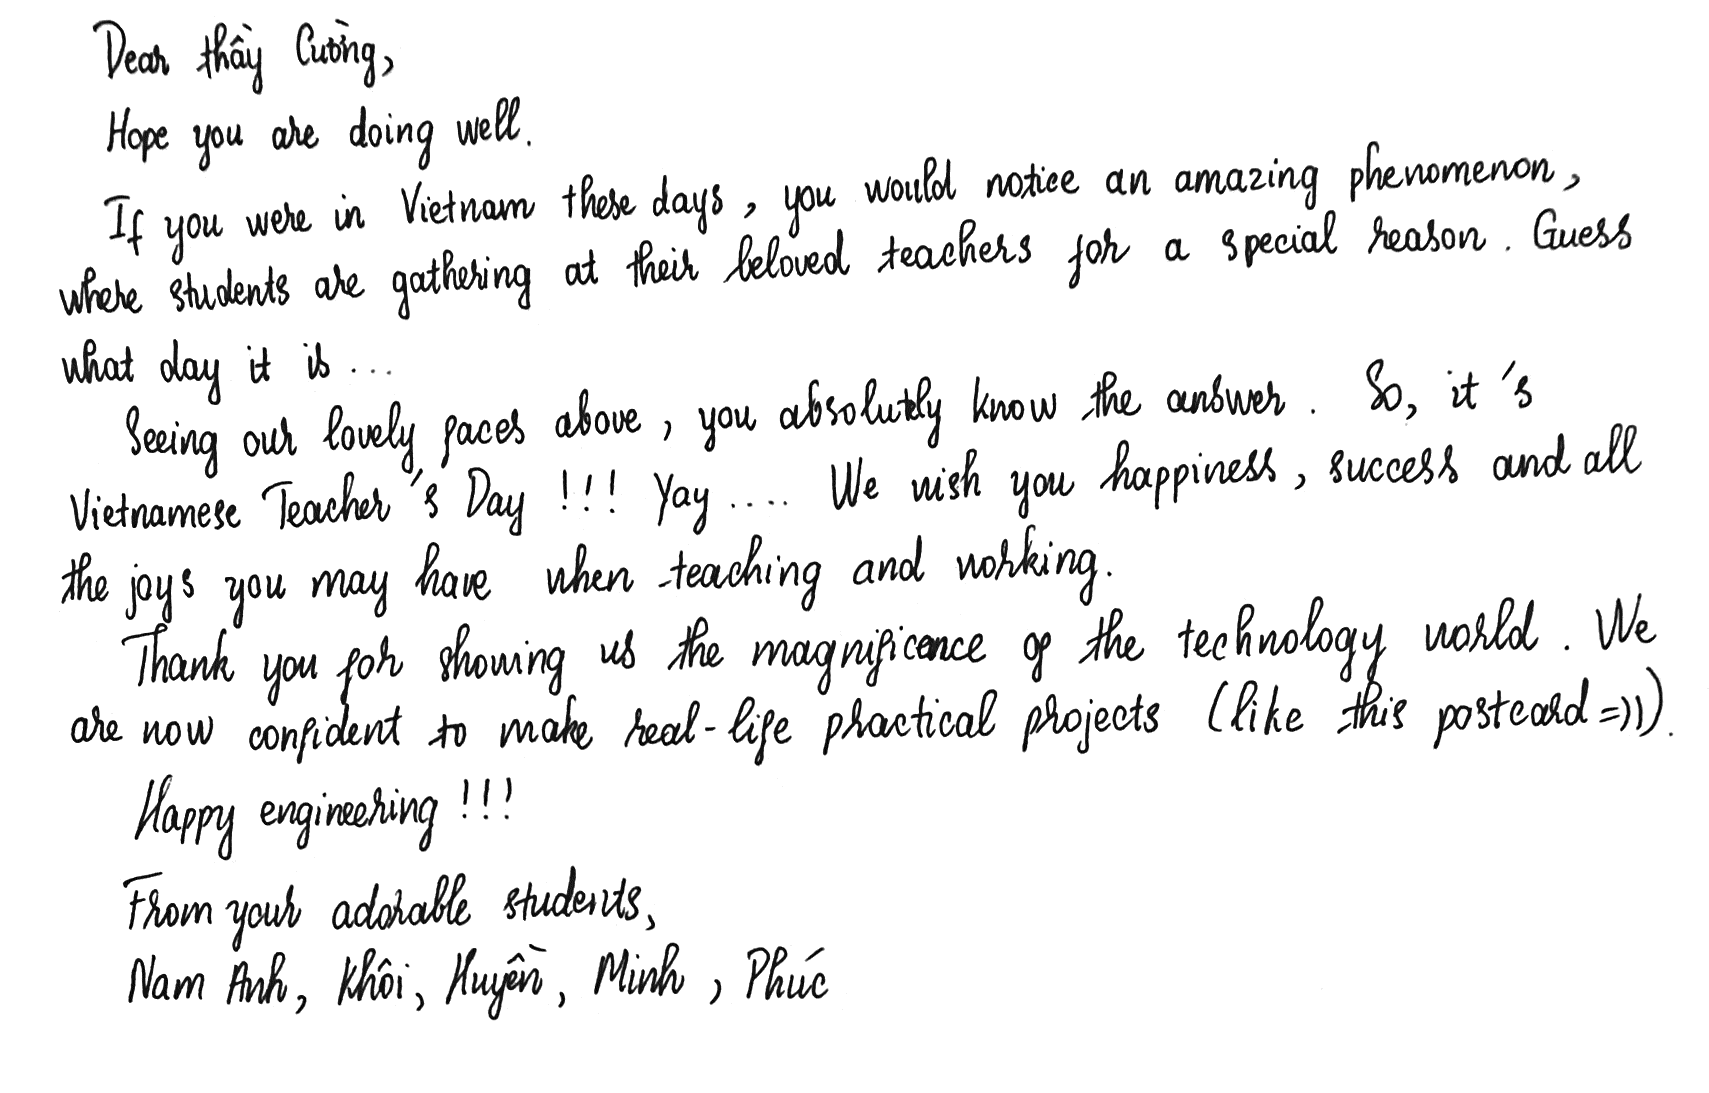 Dear thầy Cường,
Hope you are doing well.
If you were in Vietnam these days, you would notice an amazing phenomenon,
where students are gathering at their beloved teachers for a special reason. Guess
what day it is ...
Seeing our lovely faces above, you absolutely know the answer. So, it's
Vietnamese Teacher's Day !!! Yay .... We wish you happiness, success and all
the joys you may have when teaching and working.
Thank you for showing us the magnificence of the technology world. We
are now confident to make real-life practical projects (like this postcard =))).
Happy engineering !!!
From your adorable students,
Nam Anh, Khôi, Huyền, Minh, Phúc